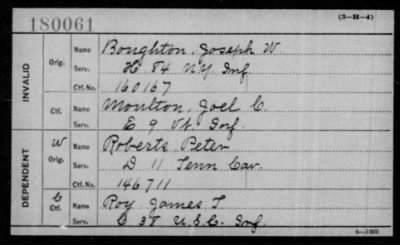 180061
(3-H-4)
INVALID
Orig.
Name Boughton, Joseph W.
Serv. H 84 N.Y. Inf.
Ctf. No. 160167
Ctf.
Name Moulton, Joel C.
Serv. E 9 Vt. Inf.
DEPENDENT
W
Orig.
Name Roberts Peter
Serv. D 11 Tenn Cav.
Ctf. No. 146711
C
Ctf.
Name Roy James T.
Serv. C 38 U.S.C. Inf